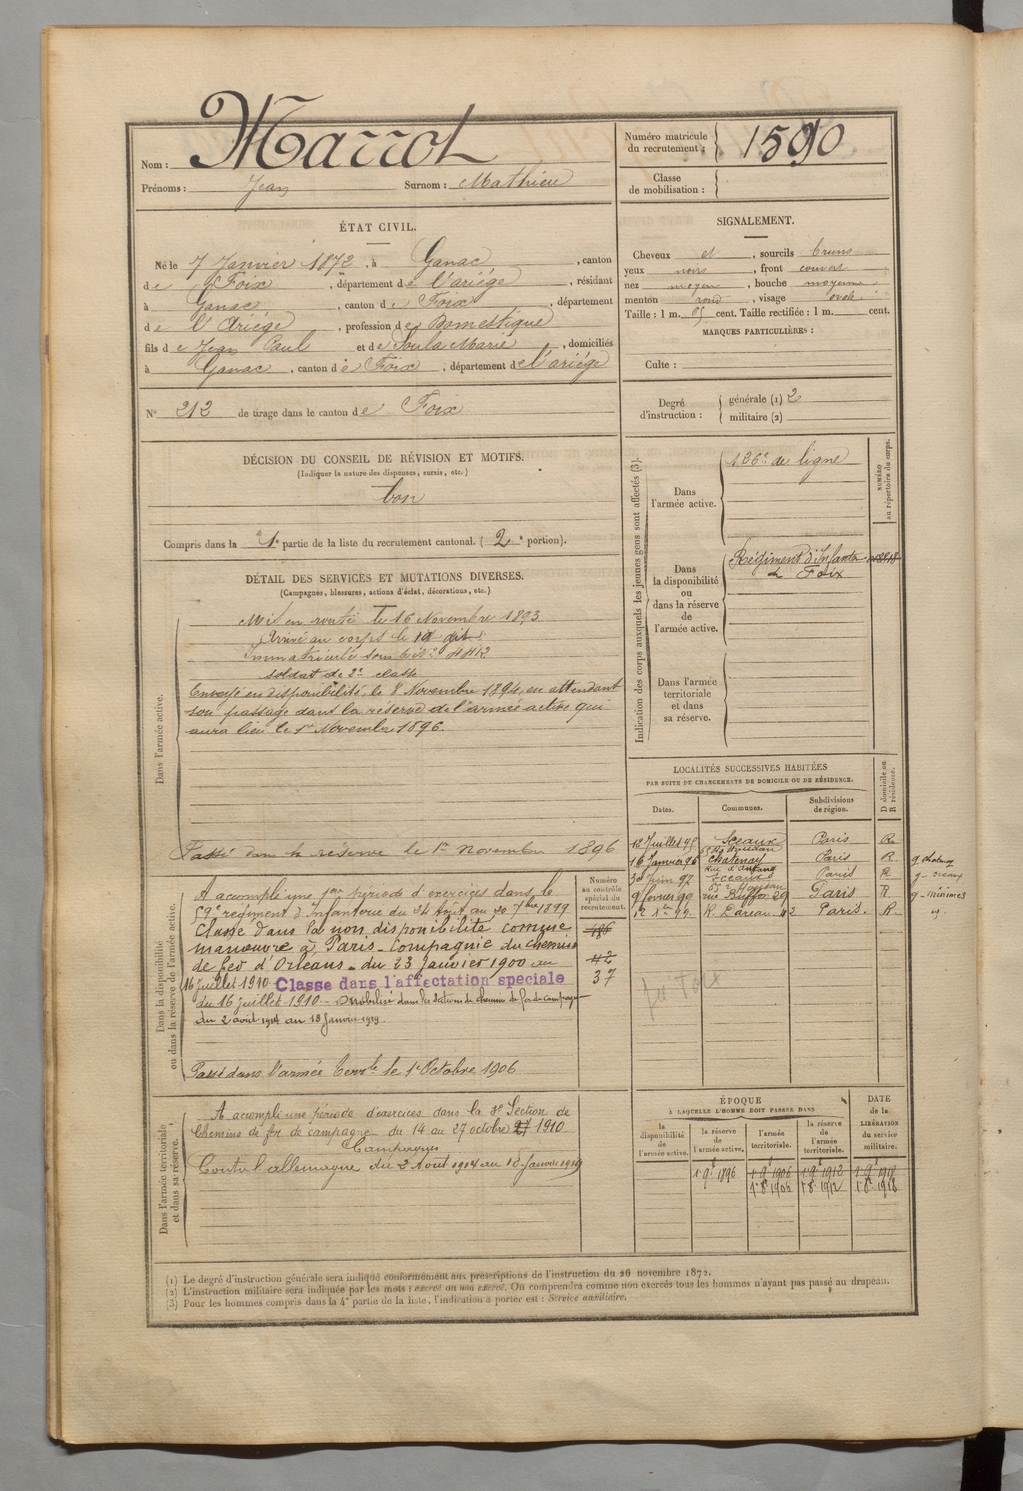 Nom : Marrot
Prénoms : Jean Surnom : Mathieu
Numéro matricule du recrutement : 1590
Classe de mobilisation :
ÉTAT CIVIL.
Né le 7 Janvier 1872, à Ganac, canton
de Foix, département de l'ariége, résidant
à Ganac, canton de Foix, département
de l'Ariége, profession de Domestique
fils de Jean Paul et de Soula Marie, domiciliés
à Ganac, canton de Foix, département de l'ariége
N° 212 de tirage dans le canton de Foix
SIGNALEMENT.
Cheveux et, sourcils bruns
yeux noirs, front couvert
nez moyen, bouche moyenne
menton rond, visage ovale
Taille : 1 m. cent. Taille rectifiée : 1 m. cent.
MARQUES PARTICULIÈRES :
Culte :
Degré d'instruction : générale (1) 2
militaire (2)
DÉCISION DU CONSEIL DE RÉVISION ET MOTIFS.
(Indiquer la nature des dispenses, sursis, etc.)
bon
Compris dans la 1e partie de la liste du recrutement cantonal. (2e portion).
DÉTAIL DES SERVICES ET MUTATIONS DIVERSES.
(Campagnes, blessures, actions d'éclat, décorations, etc.)
Dans l'armée active.
Mis en route le 16 Novembre 1893
Arrivé au corps le dit
Immatriculé sous le N° 4412
soldat de 2e classe
Envoyé en disponibilité le 8 Novembre 1894, en attendant
son passage dans la réserve de l'armée active qui
aura lieu le 1er Novembre 1896.
Passé dans la réserve le 1er Novembre 1896
Dans la disponibilité ou dans la réserve de l'armée active.
A accompli une 1ère période d'exercices dans le
59e régiment d'Infanterie du 24 Août au 20 7bre 1899
Classé dans la non disponibilité comme
manœuvre à Paris - Compagnie du chemin
de fer d'Orléans - du 23 Janvier 1900 au
16 Juillet 1910 Classé dans l'affectation spéciale
du 16 juillet 1910 - Mobilisé dans les sections de chemins de fer de campagne
du 2 août 1914 au 18 Janvier 1919.
Passé dans l'armée Terrle le 1er Octobre 1906
Numéro au contrôle spécial du recrutement.
37
Dans l'armée territoriale et dans sa réserve.
A accompli une période d'exercices dans la 3e Section de
Chemins de fer de campagne du 14 au 27 octobre 1910
Campagnes
Contre l'allemagne du 2 Aout 1914 au 18 Janvier 1919
Indication des corps auxquels les jeunes gens sont affectés (3).
NUMÉRO au répertoire du corps.
Dans l'armée active.
126e de ligne
Dans la disponibilité ou dans la réserve de l'armée active.
Régiment d'Infanterie
de Foix
Dans l'armée territoriale et dans sa réserve.
LOCALITÉS SUCCESSIVES HABITÉES
PAR SUITE DE CHANGEMENTS DE DOMICILE OU DE RÉSIDENCE.
Dates. Communes. Subdivisions de région. D domicile ou R résidence.
12 Juillet 95 Sceaux Paris R
16 Janvier 96 Chatenay Paris R g. chatenay
30 Juin 97 Sceaux Paris R g. sceaux
9 février 99 rue Buffon 29 Paris R g. minimes
R. Dareau Paris. R
ÉPOQUE
À LAQUELLE L'HOMME DOIT PASSER DANS
la disponibilité de l'armée active.
la réserve de l'armée active.
l'armée territoriale.
la réserve de l'armée territoriale.
DATE de la LIBÉRATION du service militaire.
1er 9bre 1896 1er 9bre 1906 1er 9bre 1912 1er 9bre 1918
1er 8bre 1906 1er 8bre 1912 1er 8bre 1918
(1) Le degré d'instruction générale sera indiqué conformément aux prescriptions de l'instruction du 26 novembre 1872.
(2) L'instruction militaire sera indiquée par les mots : exercé ou non exercé. On comprendra comme non exercés tous les hommes n'ayant pas passé au drapeau.
(3) Pour les hommes compris dans la 4e partie de la liste, l'indication à porter est : Service auxiliaire.